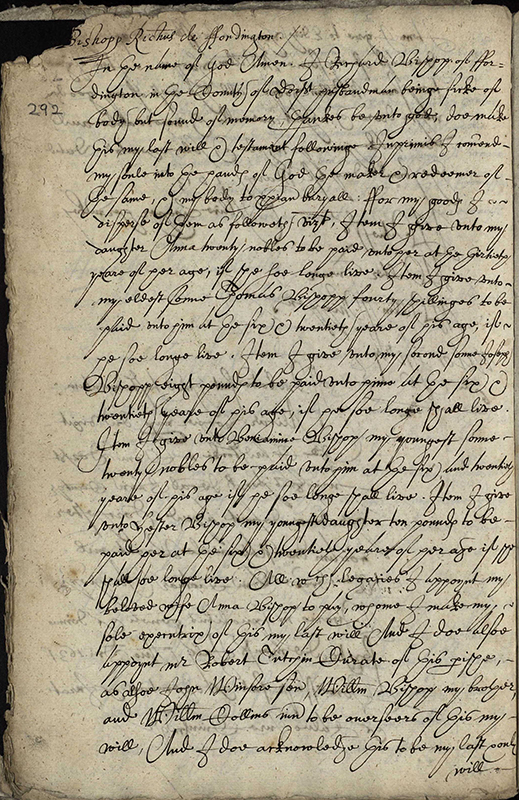 Bishopp Richus de ffordington
292
In the name of God Amen. I Richard Bisshop of ffor-
dington in the County of Dorst husbandman beinge sicke of
body but sound of memory thankes be unto god, doe make
this my last will & testament followinge Inprimis I comend
my soule into the hands of God the maker & redeemer of
the same, & my body to xpian buryall: ffor my goods I
disperse of them as followeth vizt, Item I give unto my
daughter Anna twenty nobles to be paid unto her at the
yeare of her age, if she soe longe live. Item I give unto
my eldest sonne Thomas Bisshopp fourty shillinges to be
paid unto him at the six & twentieth yeare of his age, if
he soe longe live. Item I give unto my second sonne Joseph
Bisshopp eight pounds to be paid unto hime at the six &
twentieth yeare of his age, if he soe longe shall live.
Item I give unto Beniamine Bisshop my youngest sonne
twenty nobles to be paid unto him at the six and twentieth
yeare of his age if he soe longe shall live. Item I give
unto Hester Bisshop my youngest daughter ten pounds to be
paid her at the six & twentieth yeare of her age if she
shall soe longe live. All wch legacies I appoint my
beloved wife Anna Bisshop to pay, whome I make my
sole executrix of this my last will And I doe alsoe
appoint mr Robert Curate of this pishe,
as alsoe John sen, Willm Bisshop my brother,
and Willm Collins iun to be overseers of this my
will, And I doe acknowledge this to be my last only
will